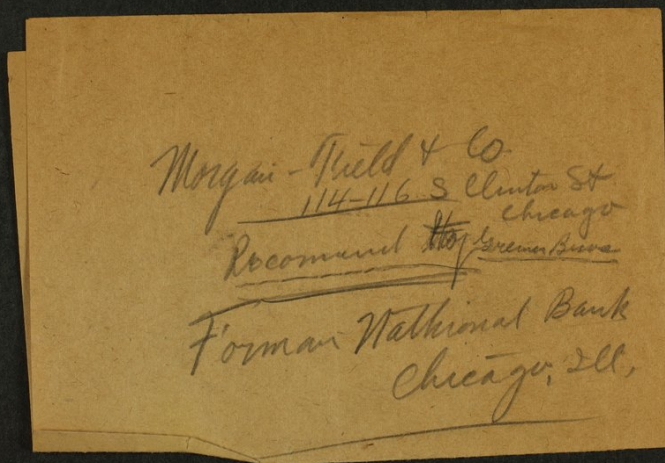 Morgan - Field & Co.
114-116 S Clinton St
Chicago
Recomend by Greiner Bros
Forman Nathional Bank
Chicago, Ill,